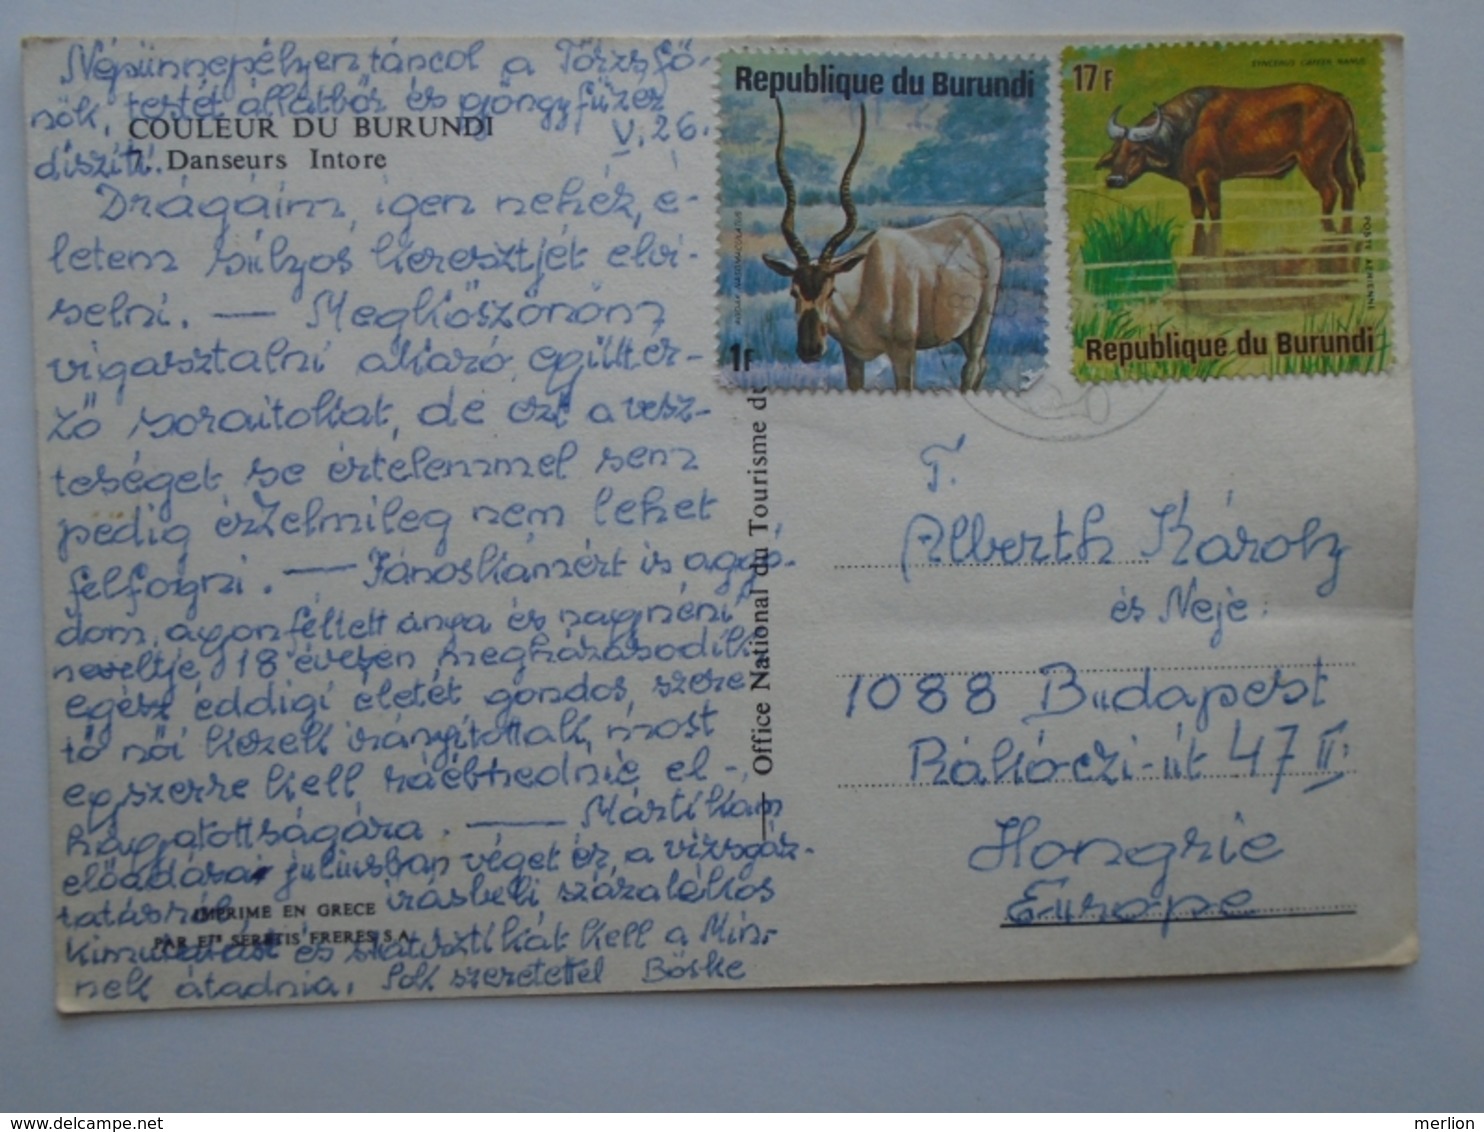 Népünnepélyen táncol a Törzsfő-
nök, testét állatbőr és gyöngyfüzér
díszíti. V. 26.
COULEUR DU BURUNDI
7. Danseurs Intore
Drágáim, igen nehéz, é-
letem súlyos keresztjét elvi-
selni. — Megköszönöm
vigasztalni akaró, együttér-
ző soraitokat, de ezt a vesz-
teséget se értelemmel sem
pedig érzelmileg nem lehet
felfogni. — Jánoskámért is aggó-
dom, agyonféltett anya és nagynéni
neveltje, 18 évesen megházasodik
egész éddigi életét gondos, szere
tő női kezek irányították, most
egyszerre kell ráébrednie el-
hagyatottságára. — Mártikám
előadásai juliusban véget ér, a vizsgáz-
tatásról írásbeli százalékos
kimutatást és statisztikát kell a Min.
nek átadnia. Sok szeretettel Böske
IMPRIME EN GRECE
PAR Ets SERETIS FRERES S.A.
Office National du Tourisme du
Republique du Burundi
ADDAX NASOMACULATUS
1F
17F
SYNCERUS CAFFER NANUS
POSTE AERIENNE
Republique du Burundi
T.
Alberth Károly
és Neje:
1088 Budapest
Rákóczi-út 47 II.
Hongrie
Europe